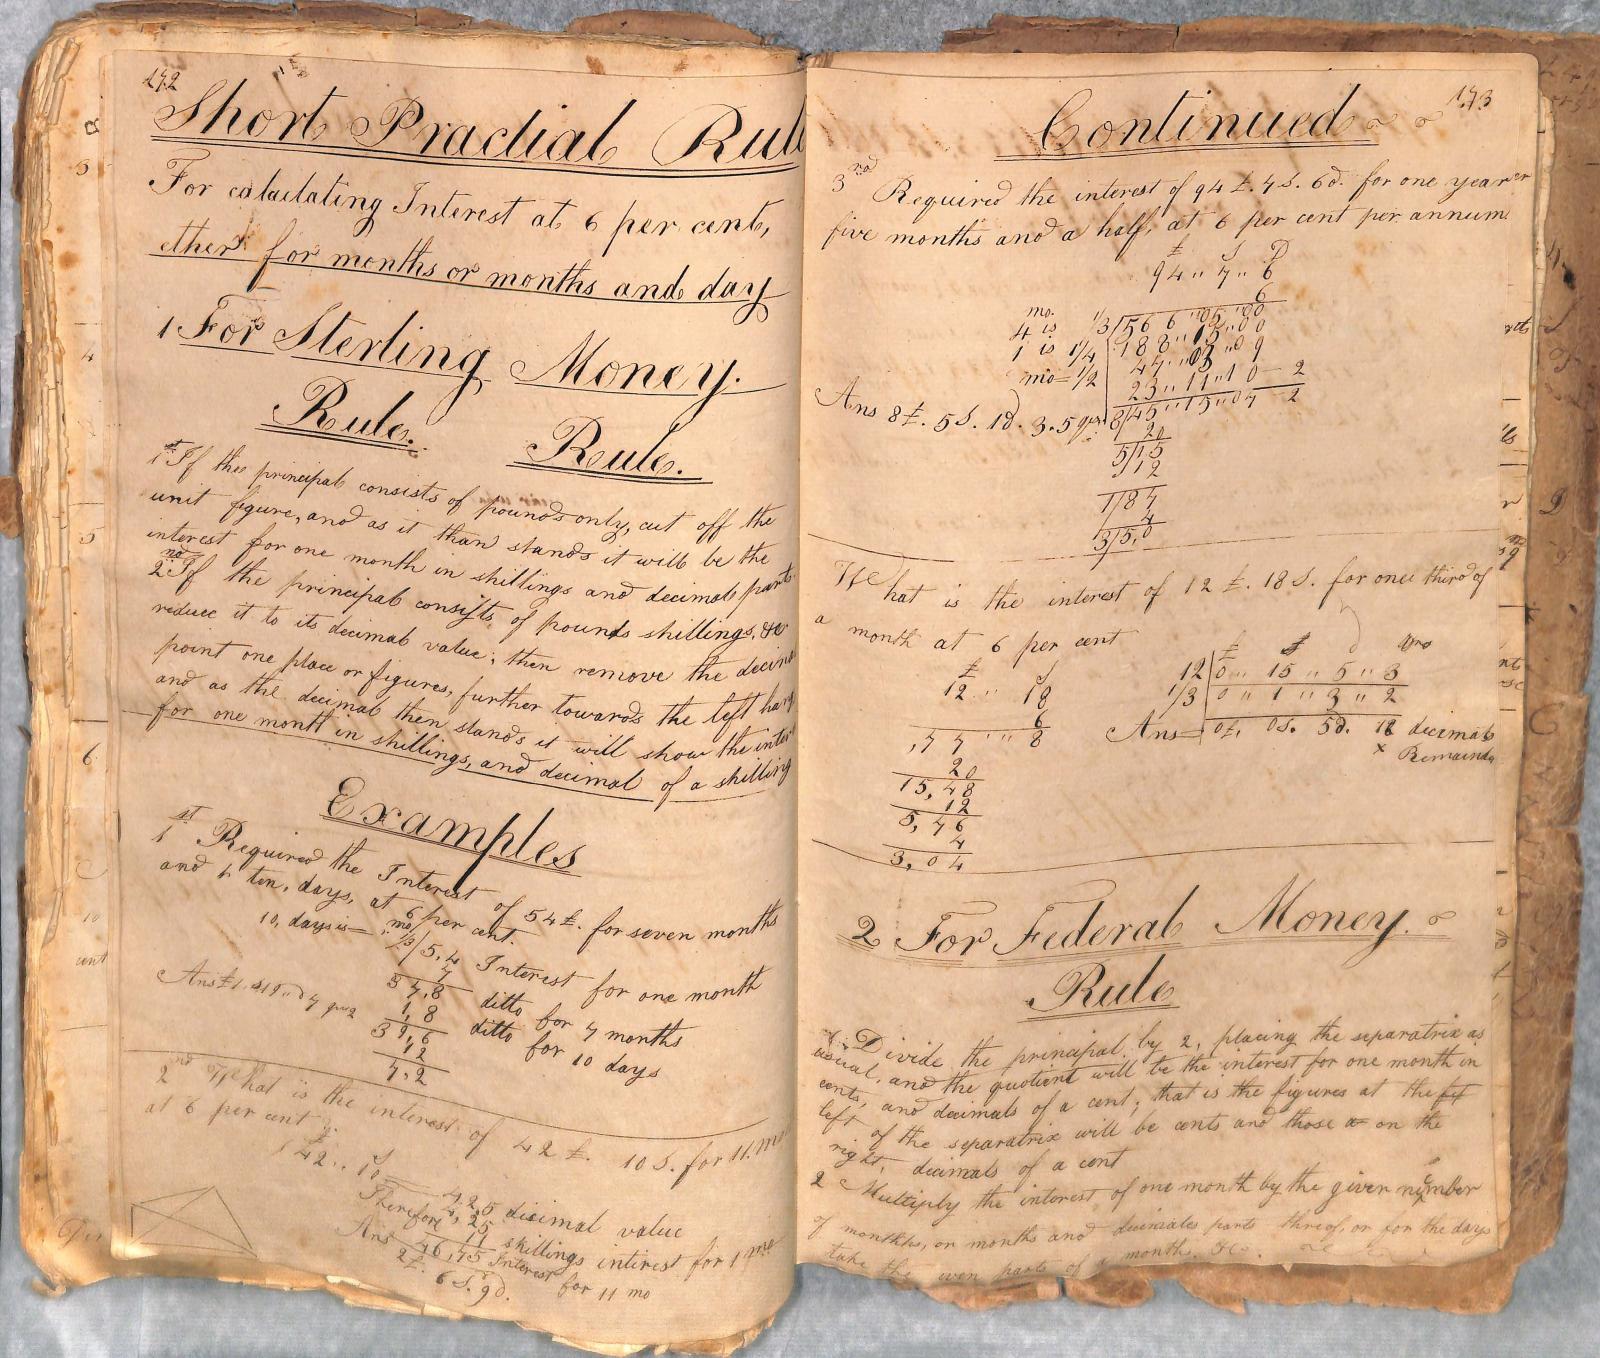 172
Short Practial Rule
For calculating Interest at 6 per cent,
ether for months or months and day
1 For Sterling Money.
Rule. Rule.
1st If the principal consists of pounds only, cut off the
unit figure, and as it than stands it will be the
interest for one month in shillings and decimal parts
2nd If the principal consists of pounds shillings, &c
reduce it to its decimal value; then remove the decimal
point one place or figures, further towards the left hand
and as the decimal then stands it will show the inter
for one month in shillings, and decimal of a shilling
Examples
1st Required the Interest of 54£. for seven months
and ten, days, at 6 per cent.
10, days is = mo 1/3 | 5,4 Interest for one month
7
37,8 ditto for 7 months
1,8 ditto for 10 days
39,6
12
7,2
Ans £1 s19 d7 qrs2
2nd What is the interest of 42£. 10S. for 11. mo
at 6 per cent
£ S
42 .. 10 = 42,5 decimal value
Therefore 4,25 skillings interest for 1 mo
11
Ans 46,75 Interest for 11 mo
2£. 6S. 9d.
173
Continued
3rd Required the interest of 94£. 7S. 6d. for one year
five months and a half, at 6 per cent per annum
£ S D
94 " 7 " 6
6
mo.
4 is 1/3 | 566 " 05 " 00
1 is 1/4 | 188 " 15 " 00
mo = 1/2 | 47 " 03 " 9
23 " 11 " 10 - 2
Ans 8£. 5S. 1d. 3.5 qrs. 8/45 " 15 " 07 2
20
5/15
12
1/87
4
3/5,0
What is the interest of 12£. 18S. for one third of
a month at 6 per cent
£ S
12 " 18
6
,77 " 8
20
15,48
12
5,76
4
3,04
£ S d qro
12 | 0 " 15 " 5 " 3
1/3 | 0 " 1 " 3 " 2
Ans = 0£. 0s. 5d. 18 decimal
x Remainder
2 For Federal Money.
Rule
1. Divide the principal by 2, placing the separatrix as
usual, and the quotient will be the interest for one month in
cents, and decimals of a cent; that is the figures at the
left of the separatrix will be cents and those on the
right, decimals of a cent
2 Multiply the interest of one month by the given number
of monthhs, or months and decimales parts threof, or for the days
take the even parts of a month. &c.